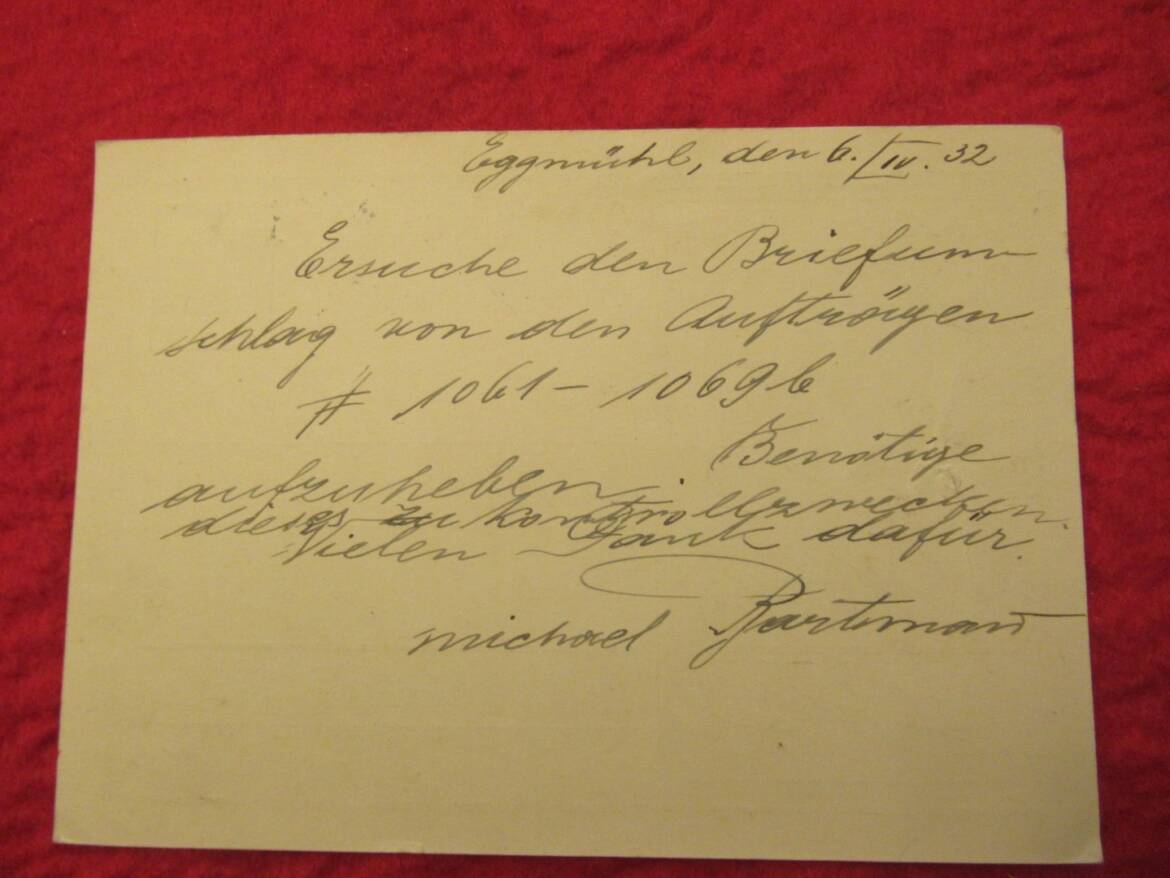 Eggmühl, den 6./IV. 32
Ersuche den Briefum-
schlag von den Aufträgen
# 1061 - 1069b
aufzuheben. Benötige
dieses zu Kontrollzwecken.
Vielen Dank dafür.
Michael